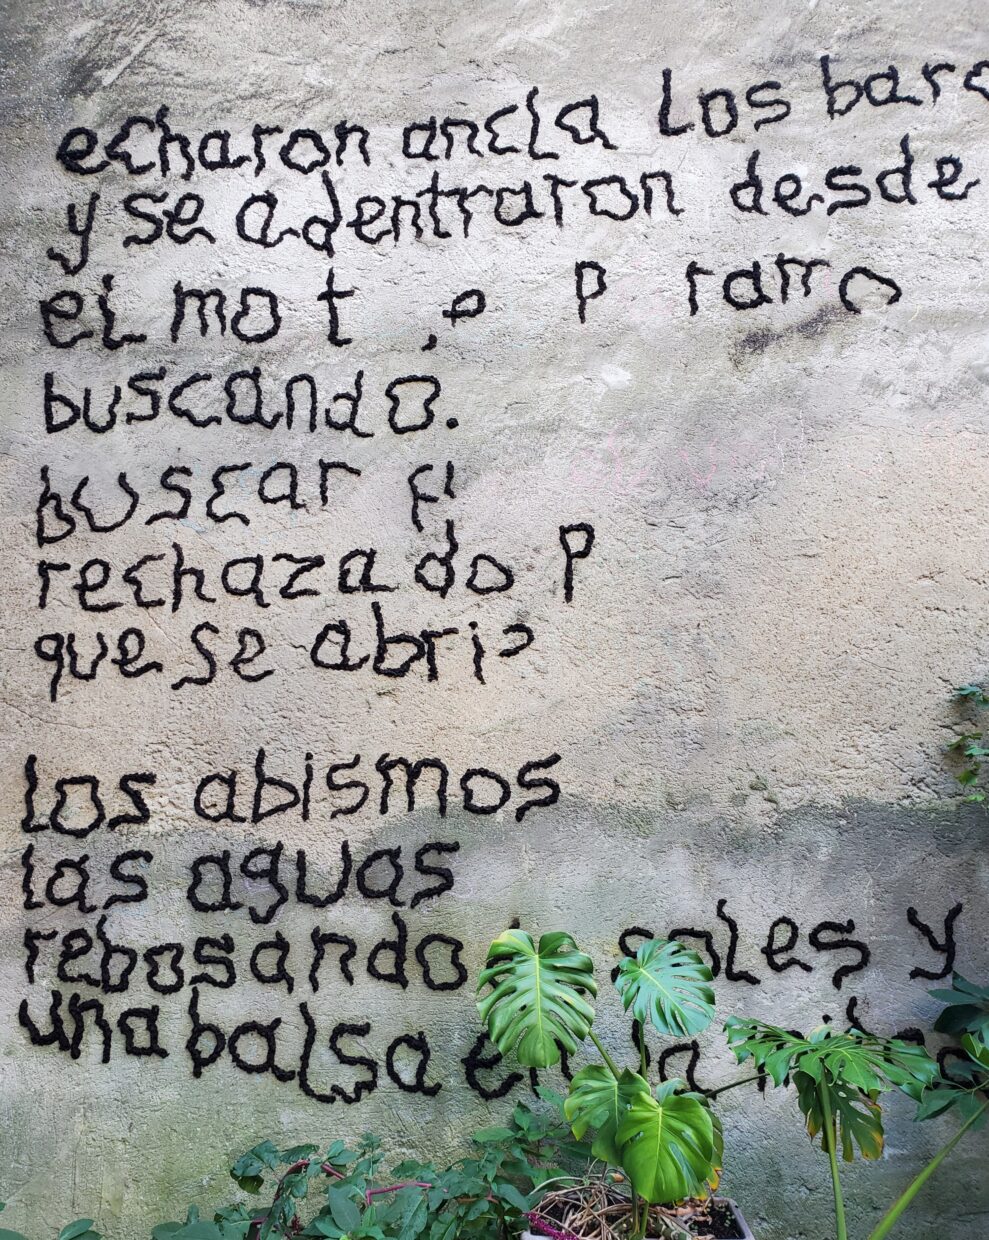 echaron ancla los barc
y se adentraron desde
el mo t e P ramo
buscando.
buscar el
rechazado P
que se abri
los abismos
las aguas
rebosando soles y
una balsa en la